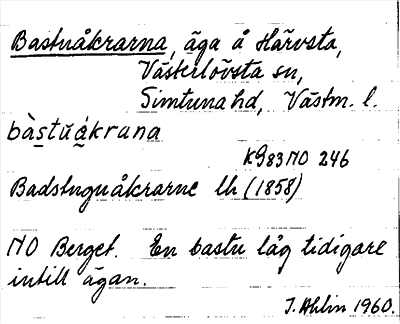 Bastuåkrarna, äga å Härvsta,
Västerlövsta sn,
Simtuna hd, Västm. l.
bàstuåkrana
K983 NO 246
Badstuguåkrarne lh (1858)
NO Berget. En bastu låg tidigare
intill ägan.
J. Ahlin 1960.